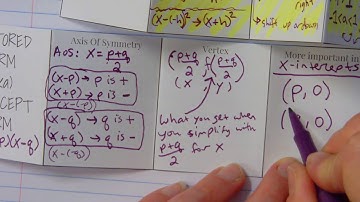 (x-(-h))² → (x+h)²
right
shift up or down
TORED
RM
(x)
CEPT
RM
p)(x-q)
Axis Of Symmetry
AOS: X = p+q/2
(x-p) → p is +
(x+p) → p is -
(x-(-p))
(x-q) → q is +
(x+q) → q is -
(x-(-q))
Vertex
(p+q/2, f(p+q/2))
(x, y)
What you get when
you simplify with
p+q/2 for x
More important in
X-intercepts
(p, 0)
( , 0)